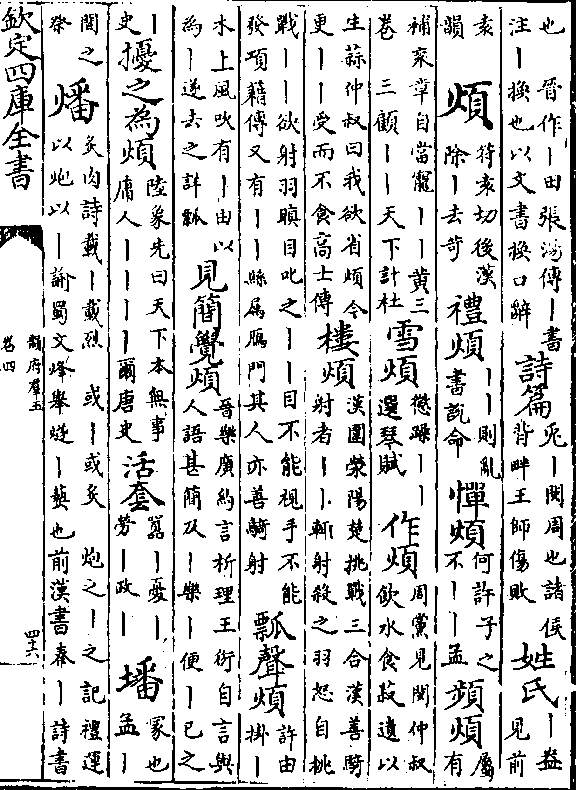 也　晉作丨田張湯傳丨書
注丨換也以文書換口辭
詩篇
兎丨閔周也諸侯
背畔王師傷敗
姓氏
丨盎
見前
袁
韻
煩
符袁切後漢
除丨去苛
禮煩
丨丨則亂
書說命
憚煩
何許子之
不丨丨孟
頻煩
屬
有
補衮章自當寵丨丨黃三
卷　三顧丨丨天下計杜
雪煩
懲躁丨丨
選琴賦
作煩
周黨見閔仲叔
飲水食菽遺以
生蒜仲叔曰我欲省煩今
更丨丨受而不食高士傳
樓煩
漢圍滎陽楚挑戰三合漢善騎
射者丨丨輒射殺之羽怒自挑
戰丨丨欲射羽瞋目叱之丨丨目不能視手不能
發項籍傳又有丨丨縣屬鴈門其人亦善騎射
瓢聲煩
許由
掛丨
木上風吹有丨由以
為丨遂去之詳瓢
見簡覺煩
晉樂廣約言析理王衍自言與
人語甚簡及丨樂丨便丨已之
丨
史
擾之為煩
陵象先曰天下本無事
庸人丨丨丨丨爾唐史
活套
囂丨憂丨
勞丨政丨
墦
冢也
孟丨
間之
祭
燔
炙肉詩載丨載烈　或丨或炙　炮之丨之記禮運
以炮以丨諭蜀文烽舉燧丨爇也前漢書秦丨詩書
欽定四庫全書
韻府羣玉
卷四
四十六